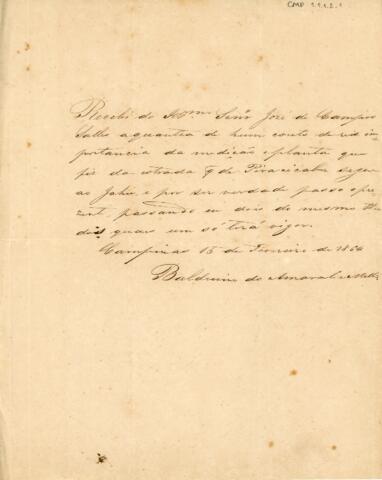 CMP 1.1.2.1
Recebi do Illmo Senr José de Campos
Salles a quantia de hum conto de reis im
portancia da medição e planta que
fiz da estrada q de Piracicaba segue
ao Jahu e por ser verdade passo o pre
zente, passando eu dois do mesmo
dos quais um só terá vigor.
Campinas 15 de Fevereiro de 1864
Balduino do Amaral e Mello